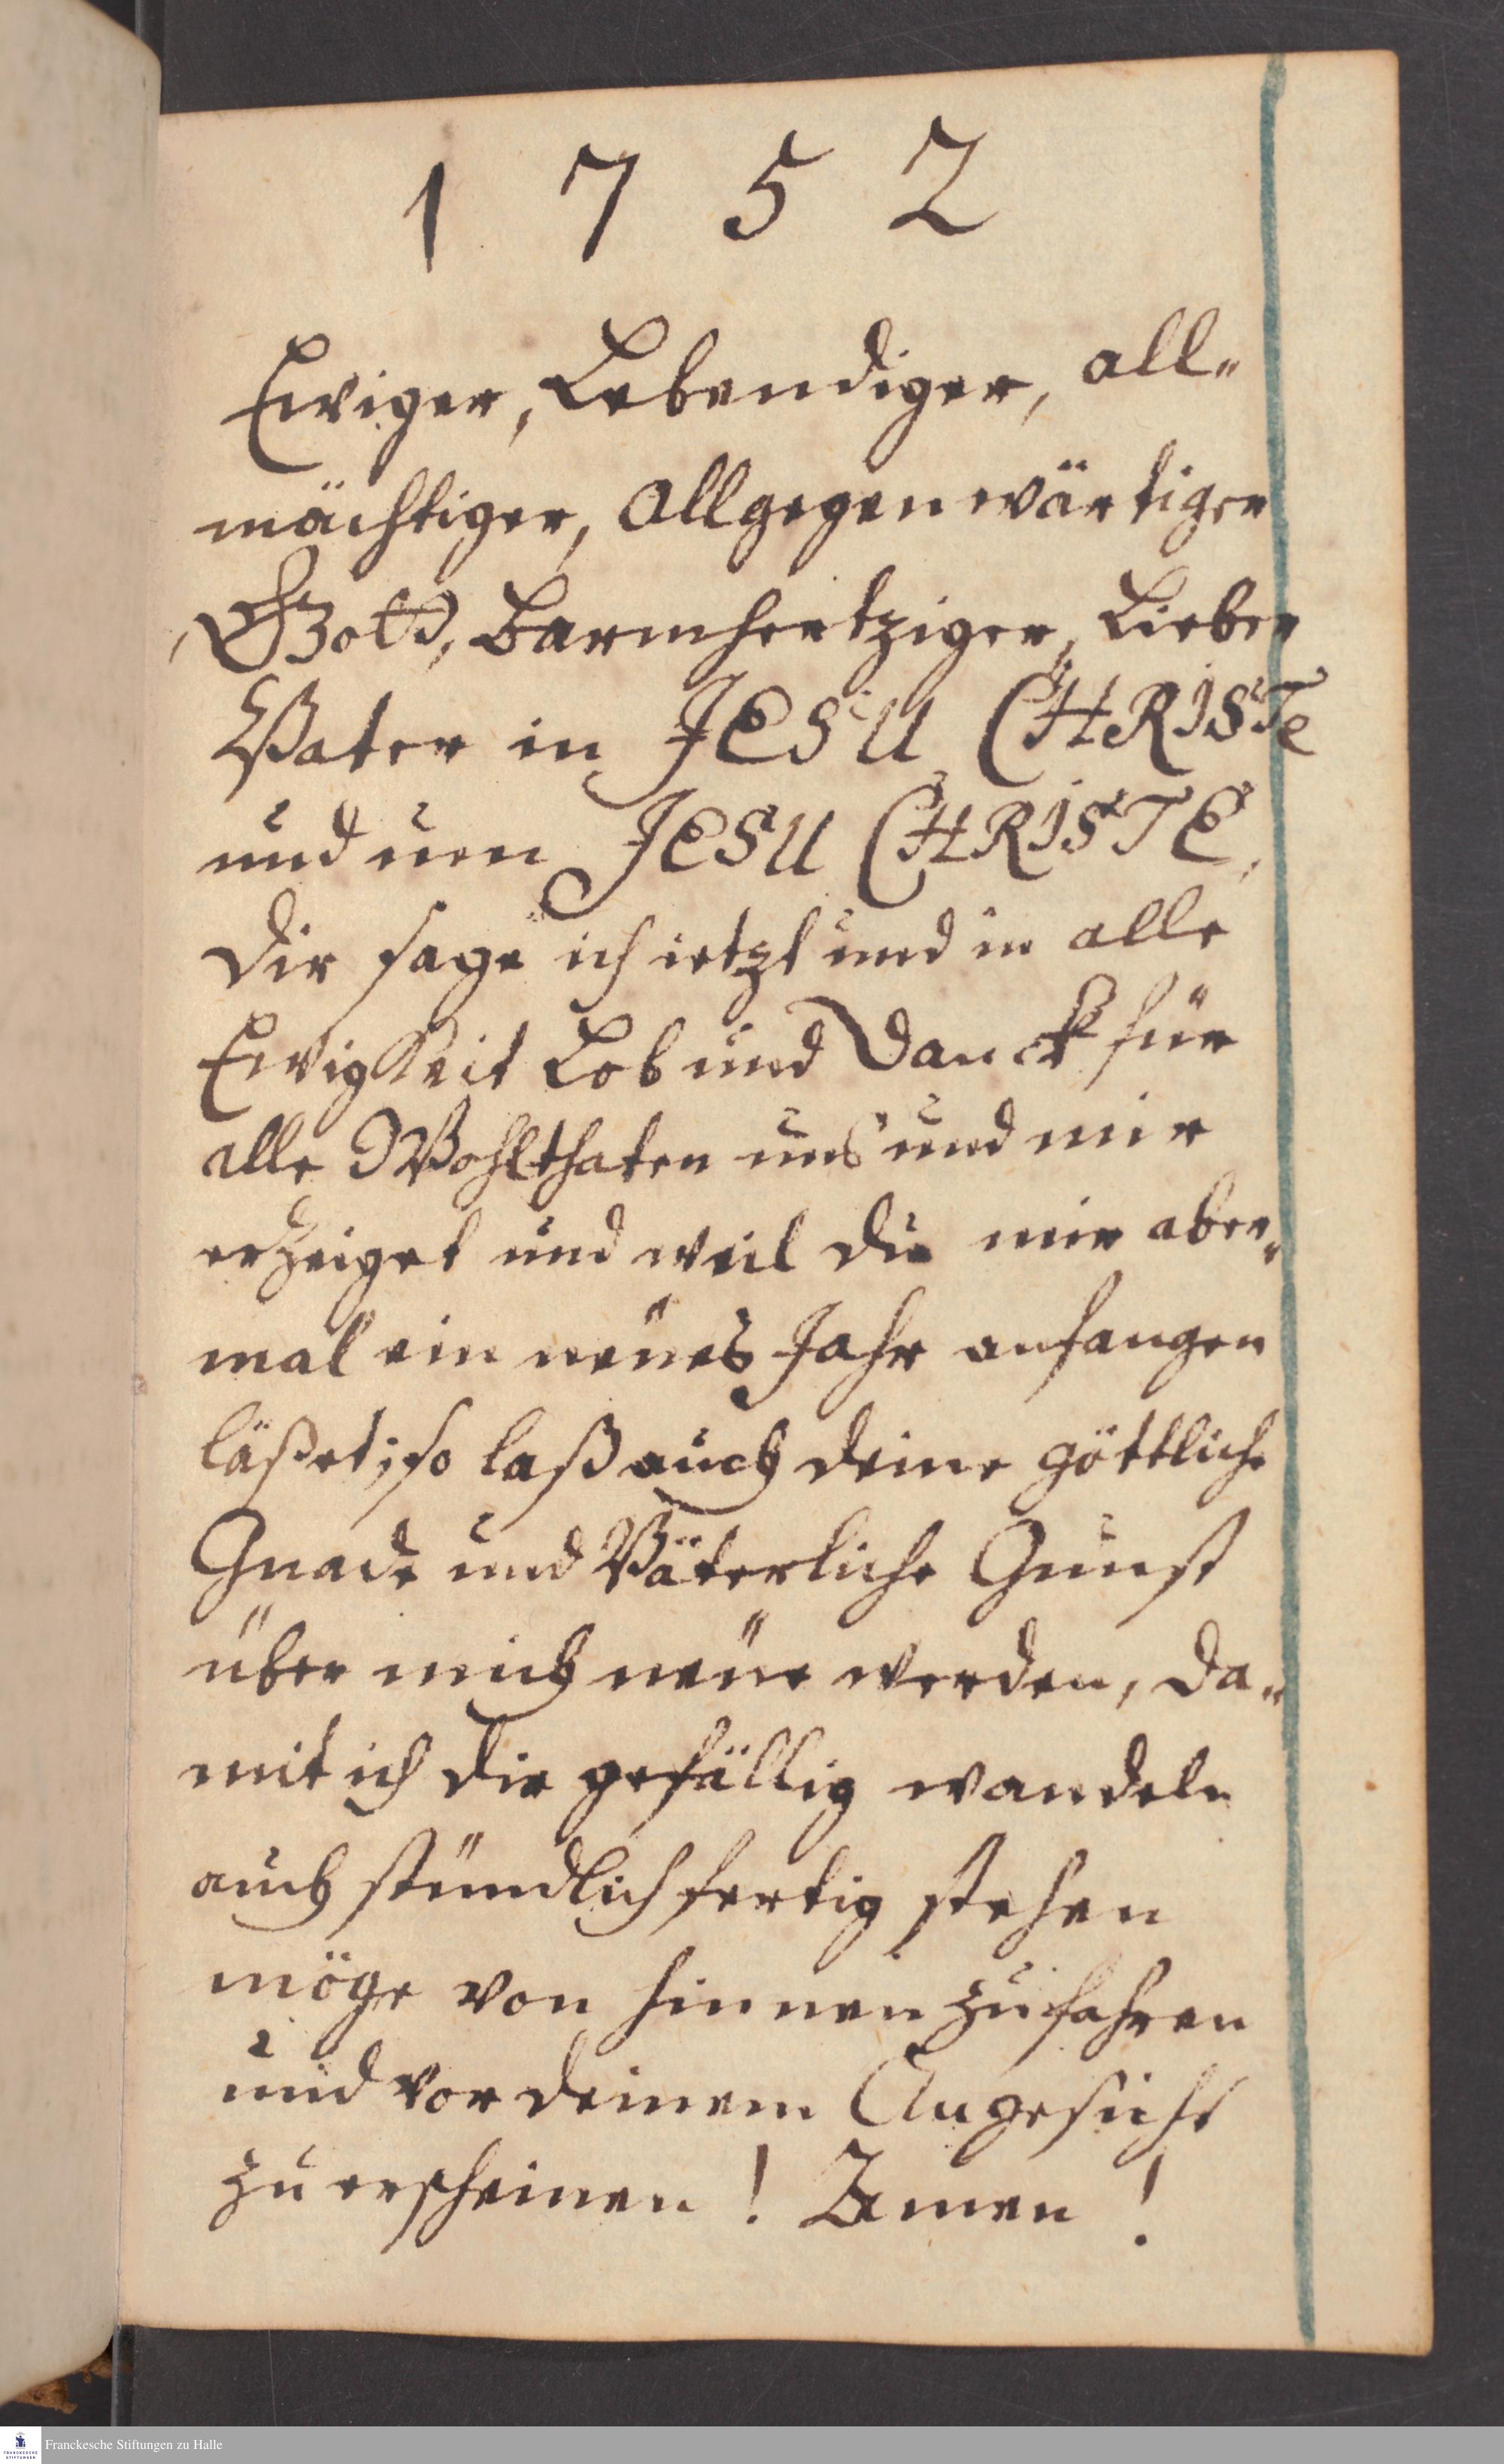 1 7 5 2
Ewiger, Lebendiger, all=
mächtiger, Allgegenwärtiger
Gott, Barmhertziger, Lieber
Vater in JESU CHRISTe
und um JESU CHRISTE,
Dir sage ich ietzt und in alle
Ewigkeit Lob und Danck für
alle Wohlthaten uns und mir
erzeiget und weil du mir aber=
mal ein neües Jahr anfangen
läßet; so laß auch deine göttliche
Gnade und Väterliche Gunst
über mich neüe werden, da=
mit ich dir gefällig wandeln
auch stündlich fertig stehen
möge von hinnen zu fahren
und vor deinem Angesicht
zu erscheinen! Amen!
FRANCKESCHE
STIFTUNGEN
Franckesche Stiftungen zu Halle